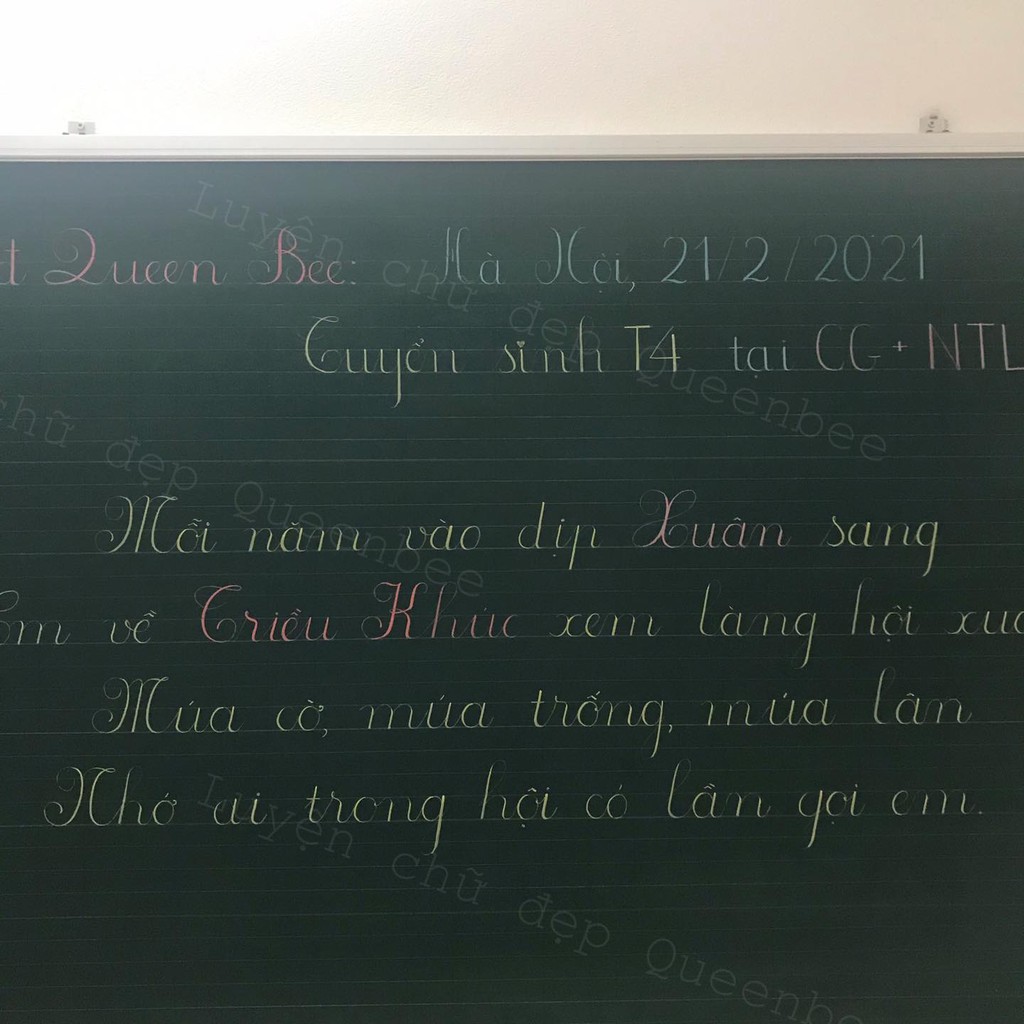 t Queen Bee: Hà Nội, 21/2/2021
Tuyển sinh T4 tại CG + NTL
Mỗi năm vào dịp Xuân sang
Em về Triều Khúc xem làng hội xuâ
Múa cờ, múa trống, múa lân
Nhớ ai trong hội có lần gọi em.
Luyện chữ đẹp Queenbee
chữ đẹp Queenbee
Luyện chữ đẹp Queenbee